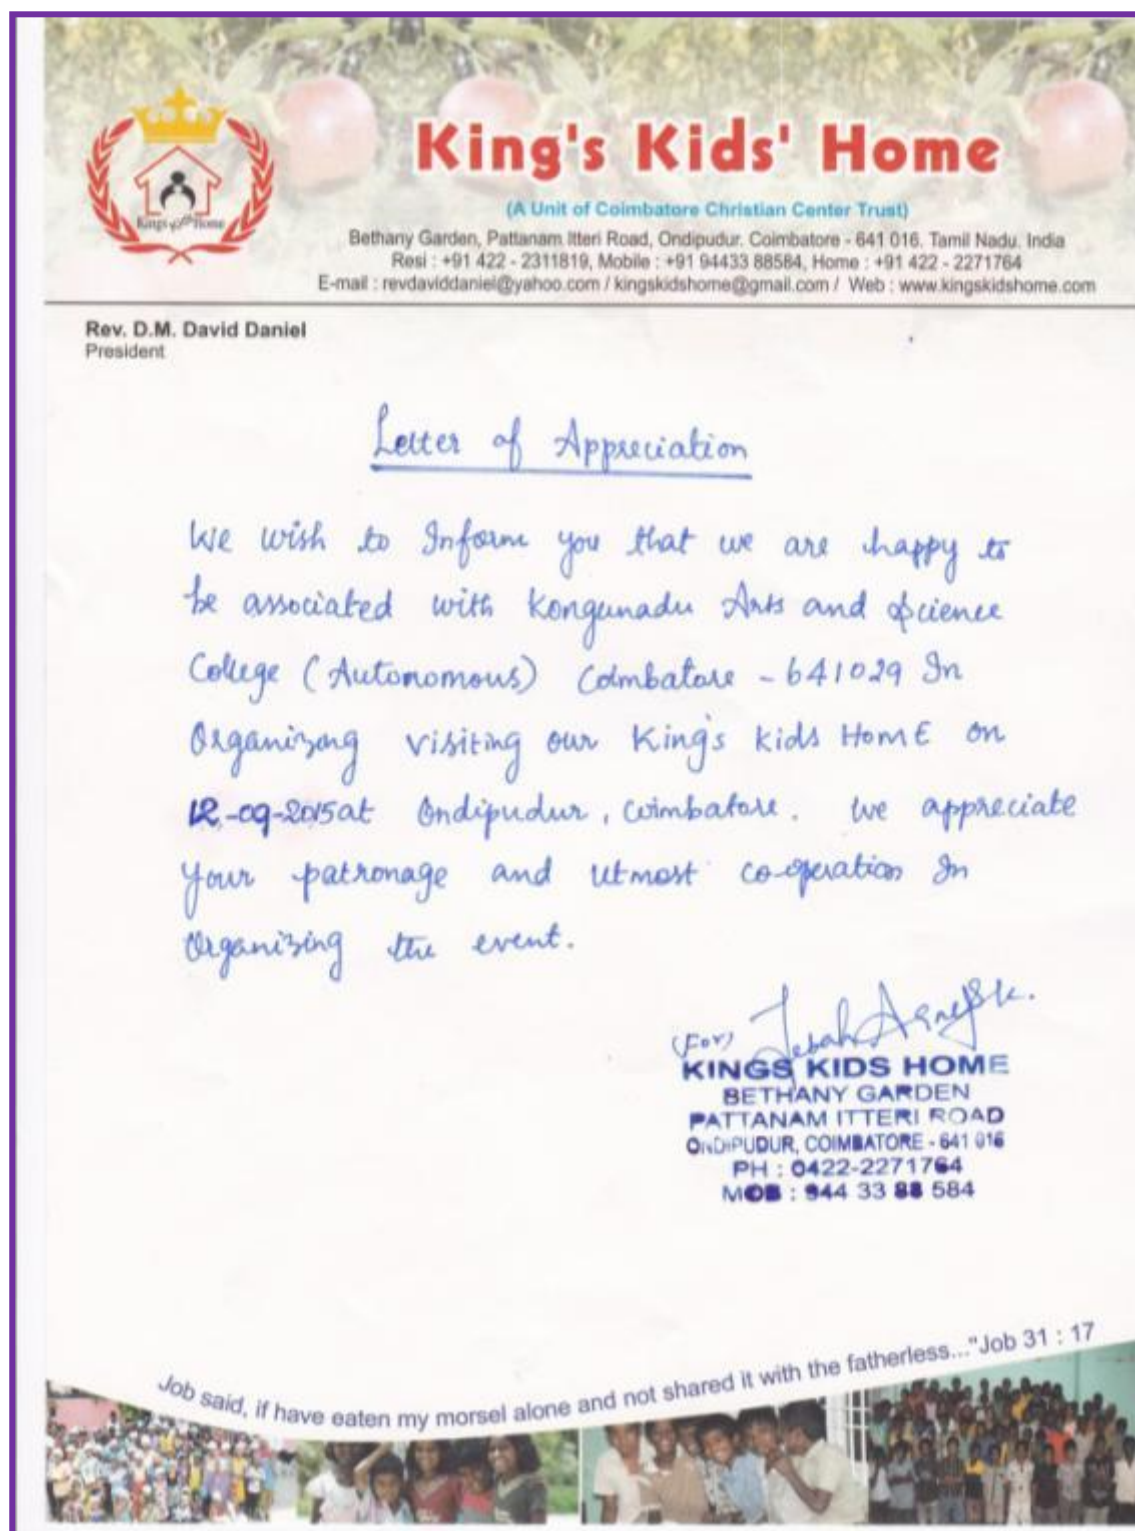 King's Kids' Home
Kings Kids Home
(A Unit of Coimbatore Christian Center Trust)
Bethany Garden, Pattanam Itteri Road, Ondipudur. Coimbatore - 641 016. Tamil Nadu. India
Resi : +91 422 - 2311819, Mobile : +91 94433 88584, Home : +91 422 - 2271764
E-mail : revdaviddaniel@yahoo.com / kingskidshome@gmail.com / Web : www.kingskidshome.com
Rev. D.M. David Daniel
President
Letter of Appreciation
We wish to Inform you that we are happy to
be associated with Kongunadu Arts and Science
College (Autonomous) Coimbatore - 641029 In
Organizing visiting our King's kids HomE on
12-09-2015 at Ondipudur, Coimbatore. We appreciate
your patronage and utmost co-operation In
Organizing the event.
(For)
KINGS KIDS HOME
BETHANY GARDEN
PATTANAM ITTERI ROAD
ONDIPUDUR, COIMBATORE - 641 016
PH : 0422-2271764
MOB : 944 33 88 584
Job said, if have eaten my morsel alone and not shared it with the fatherless..."Job 31 : 17